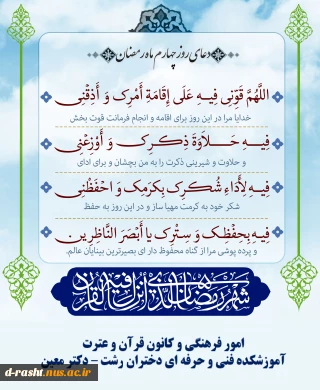 دعای روز چهارم ماه رمضان
اللَّهُمَّ قَوِّنِی فِیهِ عَلَی إِقَامَةِ أَمْرِکَ وَ أَذِقْنِی
خدایا مرا در این روز برای اقامه و انجام فرمانت قوت بخش
فِیهِ حَلاوَةَ ذِکْرِکَ وَ أَوْزِعْنِی
و حلاوت و شیرینی ذکرت را به من بچشان و برای ادای
فِیهِ لِأَدَاءِ شُکْرِکَ بِکَرَمِکَ وَ احْفَظْنِی
شکر خود به کرمت مهیا ساز و در این روز به حفظ
فِیهِ بِحِفْظِکَ وَ سِتْرِکَ یا أَبْصَرَ النَّاظِرِینَ
و پرده پوشی مرا از گناه محفوظ دار ای بصیرترین بینایان عالم.
شهر رمضان الذی انزل فیه القرآن
امور فرهنگی و کانون قرآن و عترت
آموزشکده فنی و حرفه ای دختران رشت - دکتر معین
d-rasht.nus.ac.ir